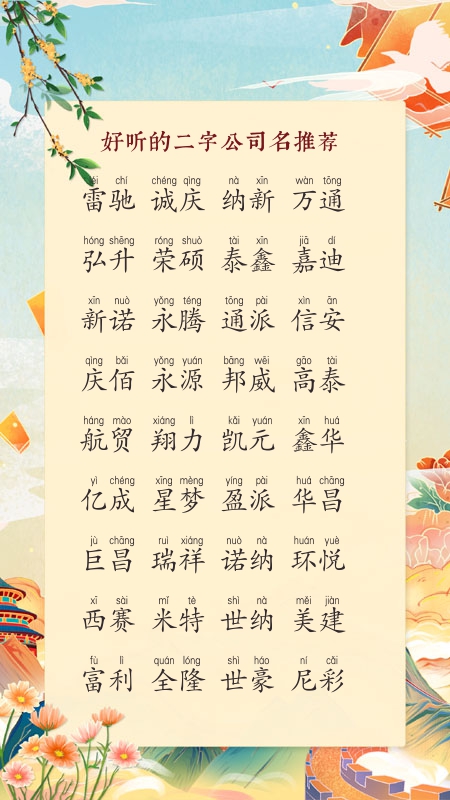 好听的二字公司名推荐
léi chí chéng qìng nà xīn wàn tōng
雷驰 诚庆 纳新 万通
hóng shēng róng shuò tài xīn jiā dí
弘升 荣硕 泰鑫 嘉迪
xīn nuò yǒng téng tōng pài xìn ān
新诺 永腾 通派 信安
qìng bǎi yǒng yuán bāng wēi gāo tài
庆佰 永源 邦威 高泰
háng mào xiáng lì kǎi yuán xīn huá
航贸 翔力 凯元 鑫华
yì chéng xīng mèng yíng pài huá chāng
亿成 星梦 盈派 华昌
jù chāng ruì xiáng nuò nà huán yuè
巨昌 瑞祥 诺纳 环悦
xī sài mǐ tè shì nà měi jiàn
西赛 米特 世纳 美建
fù lì quán lóng shì háo ní cǎi
富利 全隆 世豪 尼彩